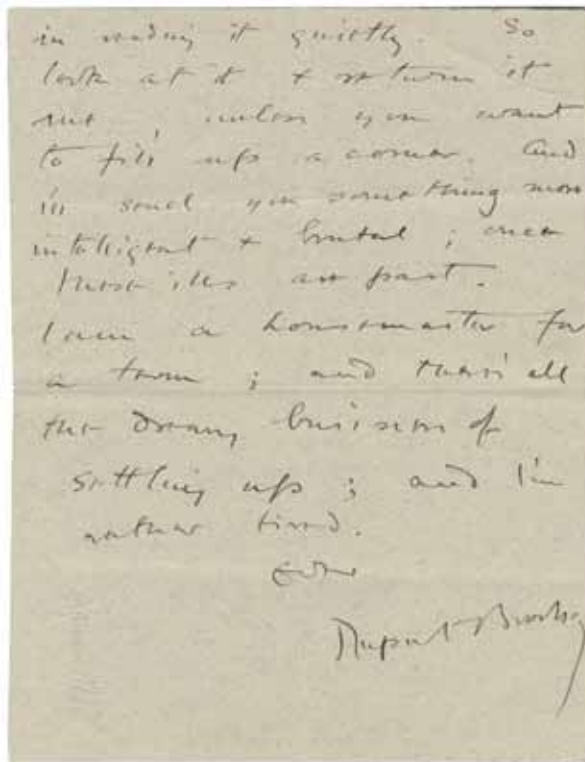 in reading it quietly. So
look at it & return it
me, unless you want
to fill up a corner. And
I'll send you something more
intelligent & brutal; once
these ills are past.
I am a housemaster for
a term; and there's all
the dreary business of
settling up; and I'm
rather tired.
Ever
Rupert Brooke